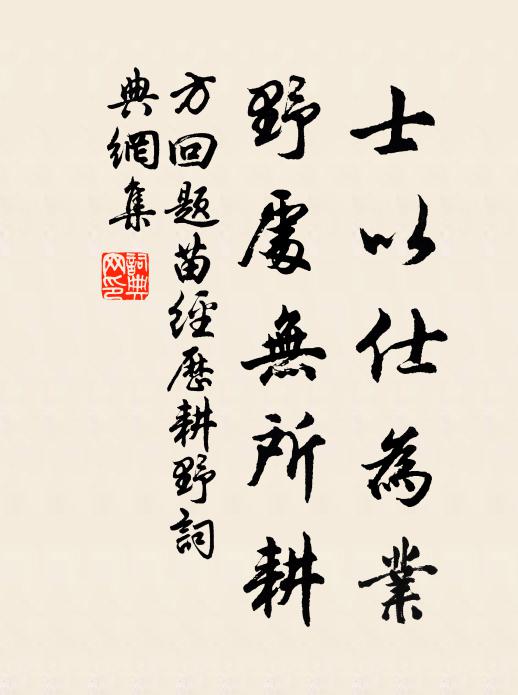 士以仕為業
野處無所耕
方回題苗經歷耕野詞
典網集
詞典網印